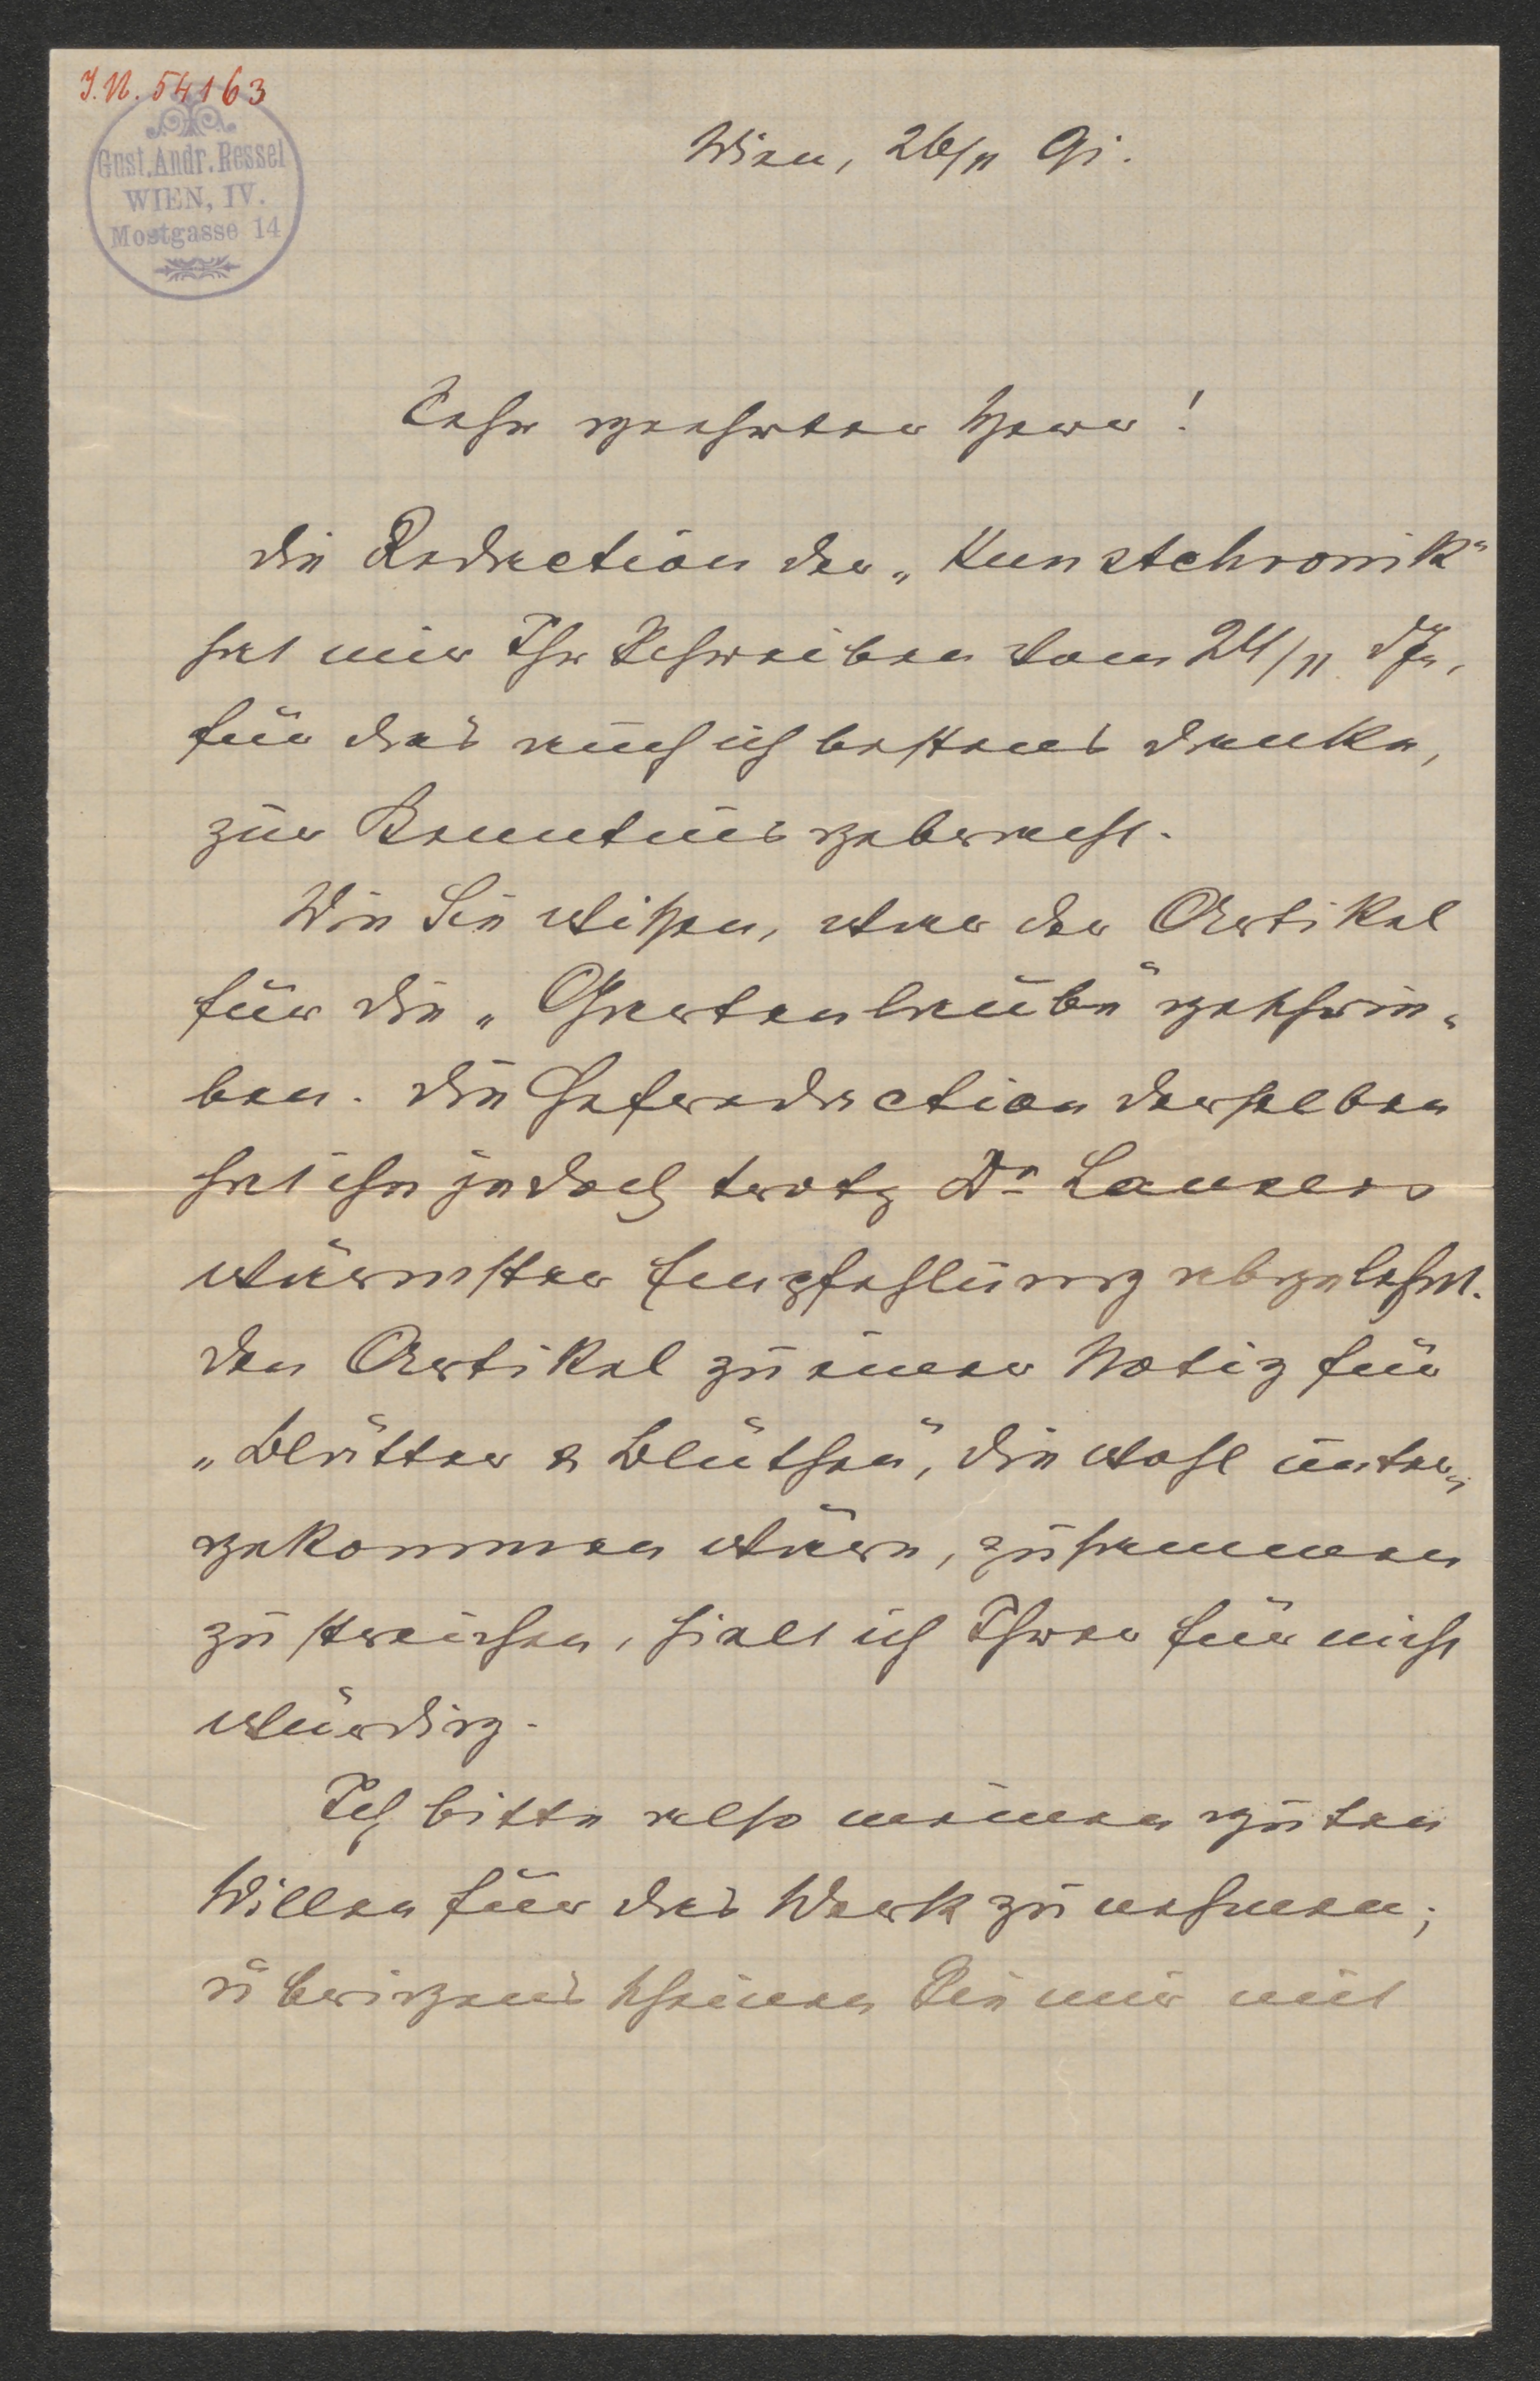 J.N. 54163
Gust. Andr. Ressel
WIEN, IV.
Mostgasse 14
Wien, 26/11 91.
Sehr geehrter Herr!
Die Redaction der „Kunstchronik“
hat mir Ihr Schreiben vom 24/11 djs,
für das auch ich bestens danke,
zur Kenntnis gebracht.
Wie Sie wißen, war der Artikel
für die „Gartenlaube“ geschrie-
ben. Die Chefredaction derselben
hat ihn jedoch trotz Dr Lausers
wärmster Empfehlung abgelehnt.
Den Artikel zu einer Notiz für
„Blätter & Blüthen“, die wohl unter-
gekommen wäre, zusammen
zu streichen, hielt ich Ihrer für nicht
würdig.
Ich bitte also meinen guten
Willen für das Werk zu nehmen;
übrigens scheinen Sie mir mit